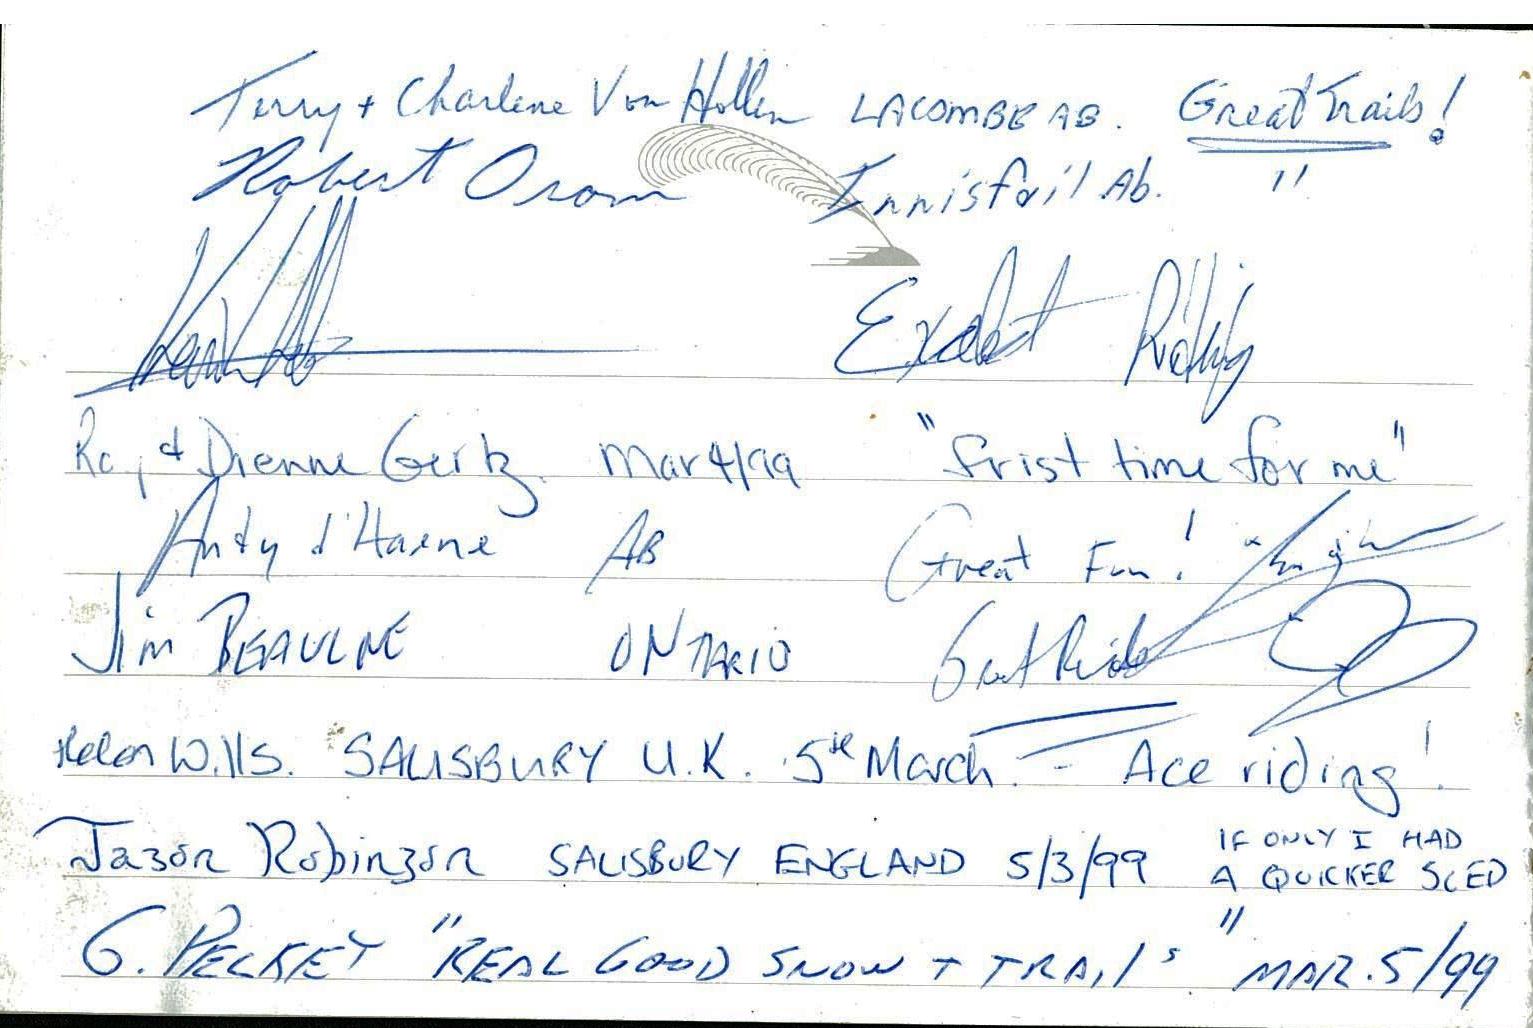 Terry + Charlene Von Hollen LACOMBE AB. Great Trails!
Robert Orom Innisfail Ab. "
Riding
& Dienne Gertz Mar 4/99 "frist time for me"
Andy d'Haene AB Great Fun!
Jim BEAULNE ONTARIO Great Ride
Helen Wills. SALISBURY U.K. 5th March. - Ace riding!
Jason Robinson SALISBURY ENGLAND 5/3/99 IF ONLY I HAD
A QUICKER SLED
G. PECKET "REAL GOOD SNOW + TRAILS" MAR. 5/99